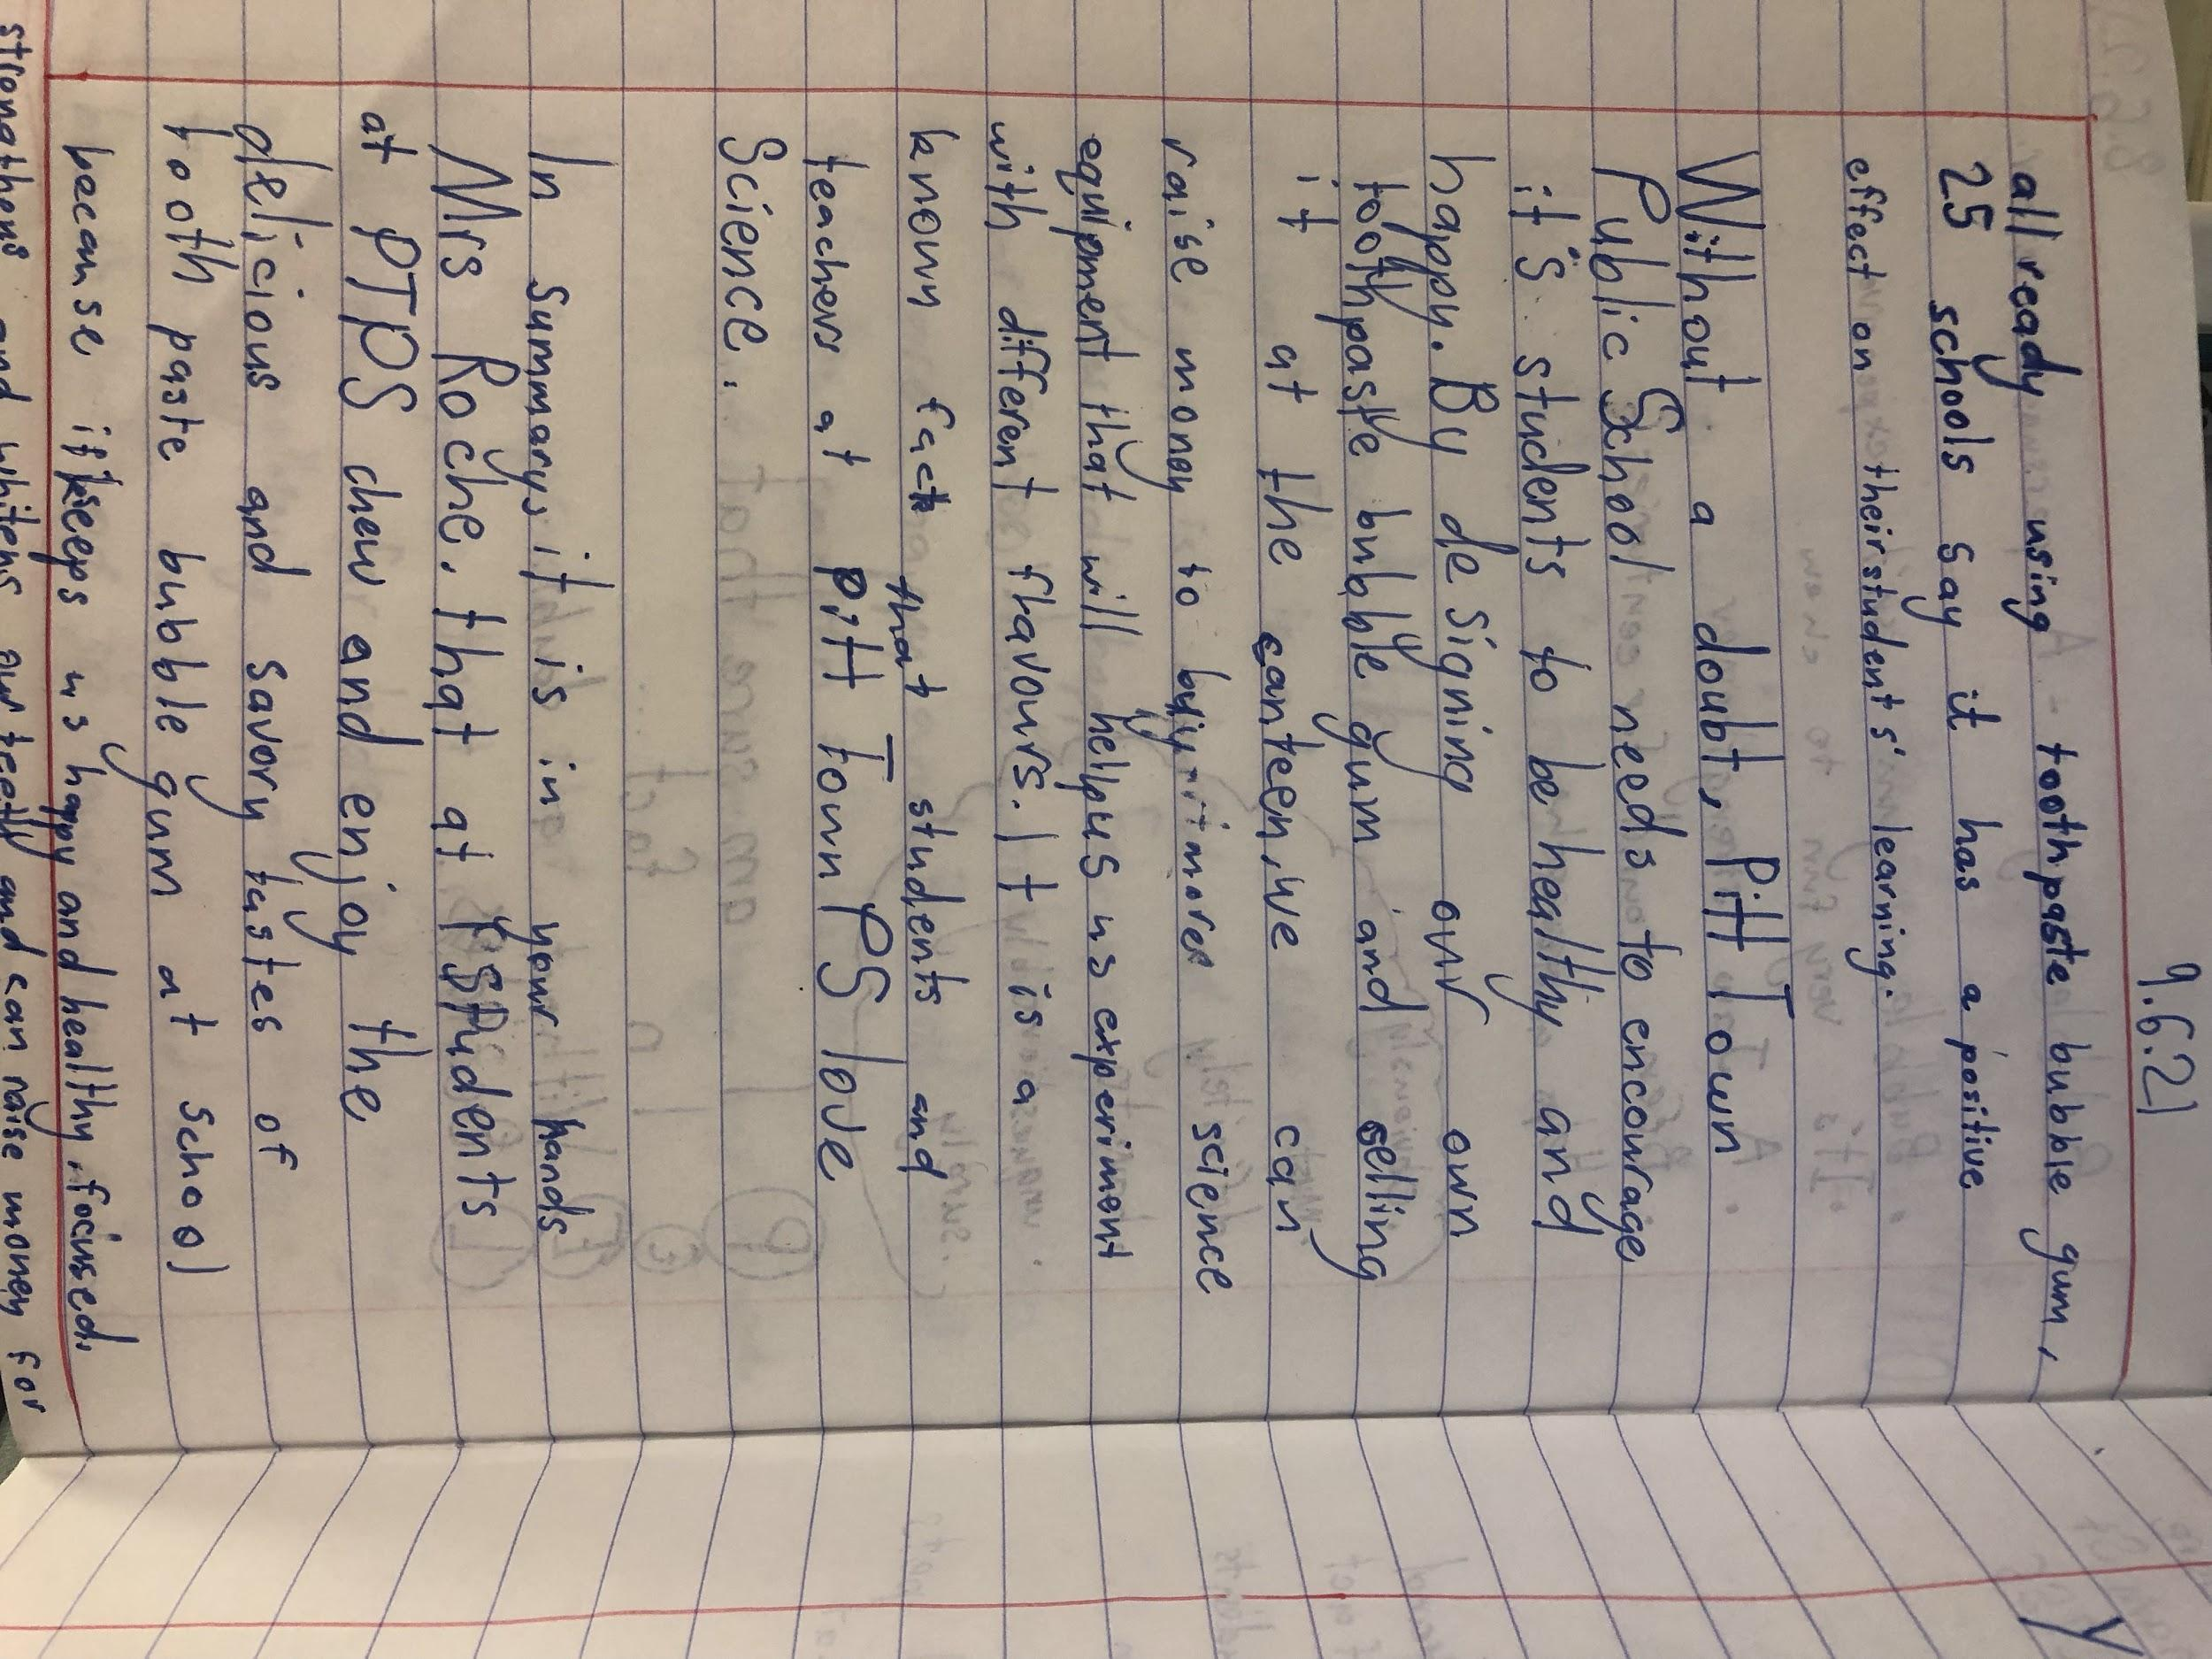 9.6.21
all ready using toothpaste bubble gum,
25 schools say it has a positive
effect on their student's' learning.
Without a doubt, Pitt Town
Public School needs to encourage
it's students to be healthy and
happy. By designing our own
toothpaste bubble gum and selling
it at the canteen, we can
raise money to buy more science
equipment that will help us experiment
with different flavours. It is a
known fact that students and
teachers at Pitt Town PS love
Science.
In summary, it is in your hands
Mrs Roche, that at students
at PTPS chew and enjoy the
delicious and savory tastes of
tooth paste bubble gum at school
because it keeps us happy and healthy, focused,
strengthens and whitens our teeth and can raise money for